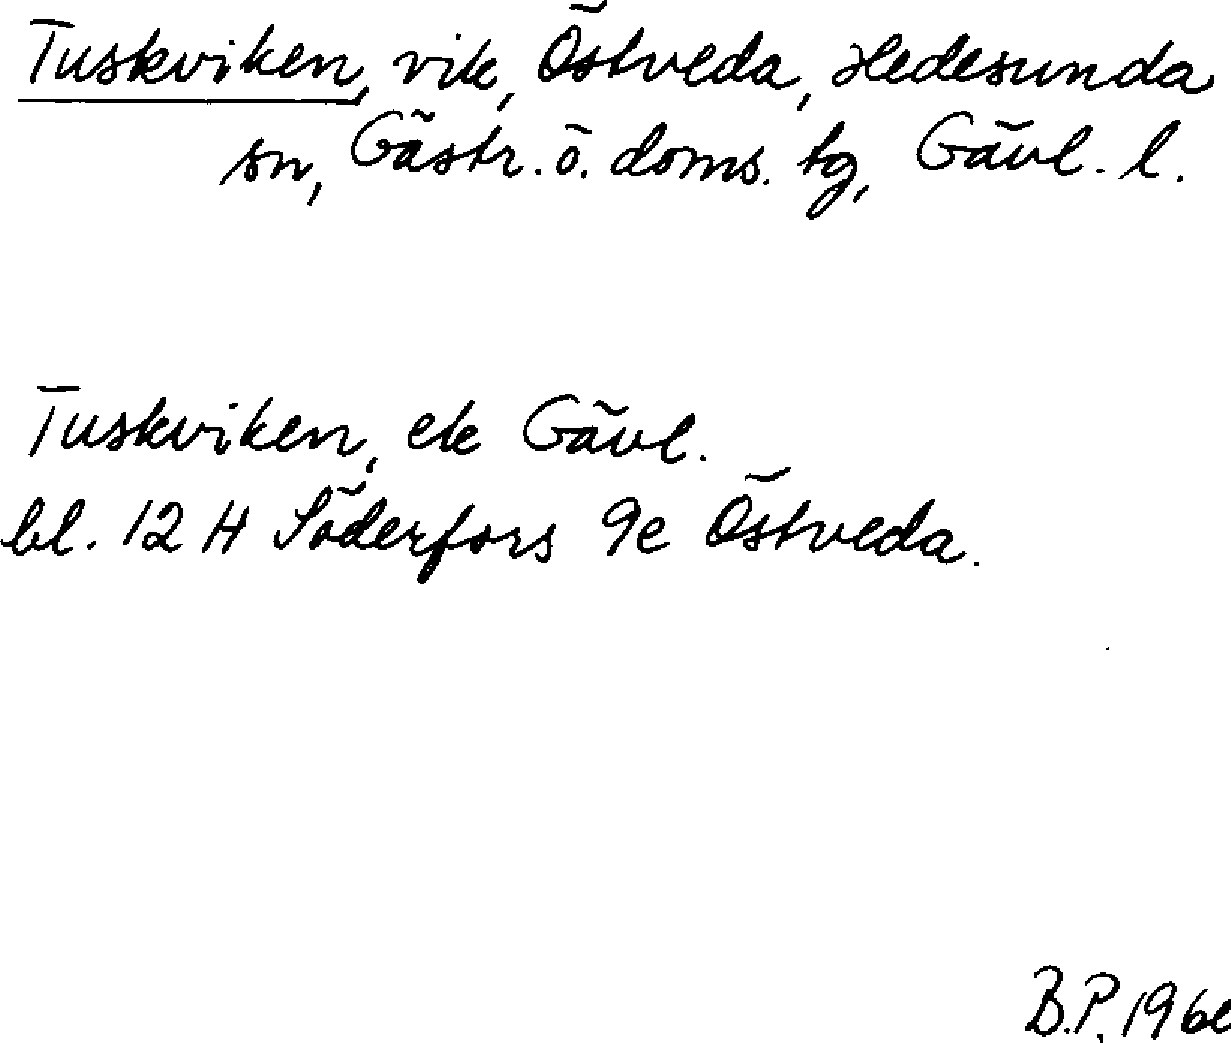 Tuskviken, vik, Östveda, Hedesunda
sn, Gästr. ö. doms. tg, Gävl. l.
Tuskviken, ek Gävl.
bl. 12 H Söderfors 9e Östveda.
B.P.